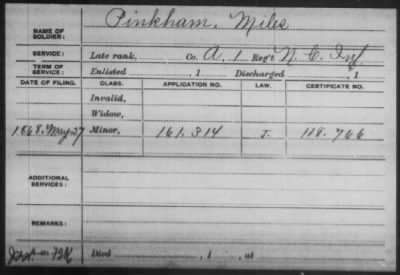 NAME OF SOLDIER: Pinkham, Miles
SERVICE: Late rank, Co. A, 1 Reg't N. C. Inf
TERM OF SERVICE: Enlisted , 1 Discharged , 1
DATE OF FILING. CLASS. APPLICATION NO. LAW. CERTIFICATE NO.
Invalid,
Widow,
1868. May 27 Minor, 161.314 J. 118.766
ADDITIONAL SERVICES:
REMARKS:
Died , 1 , at